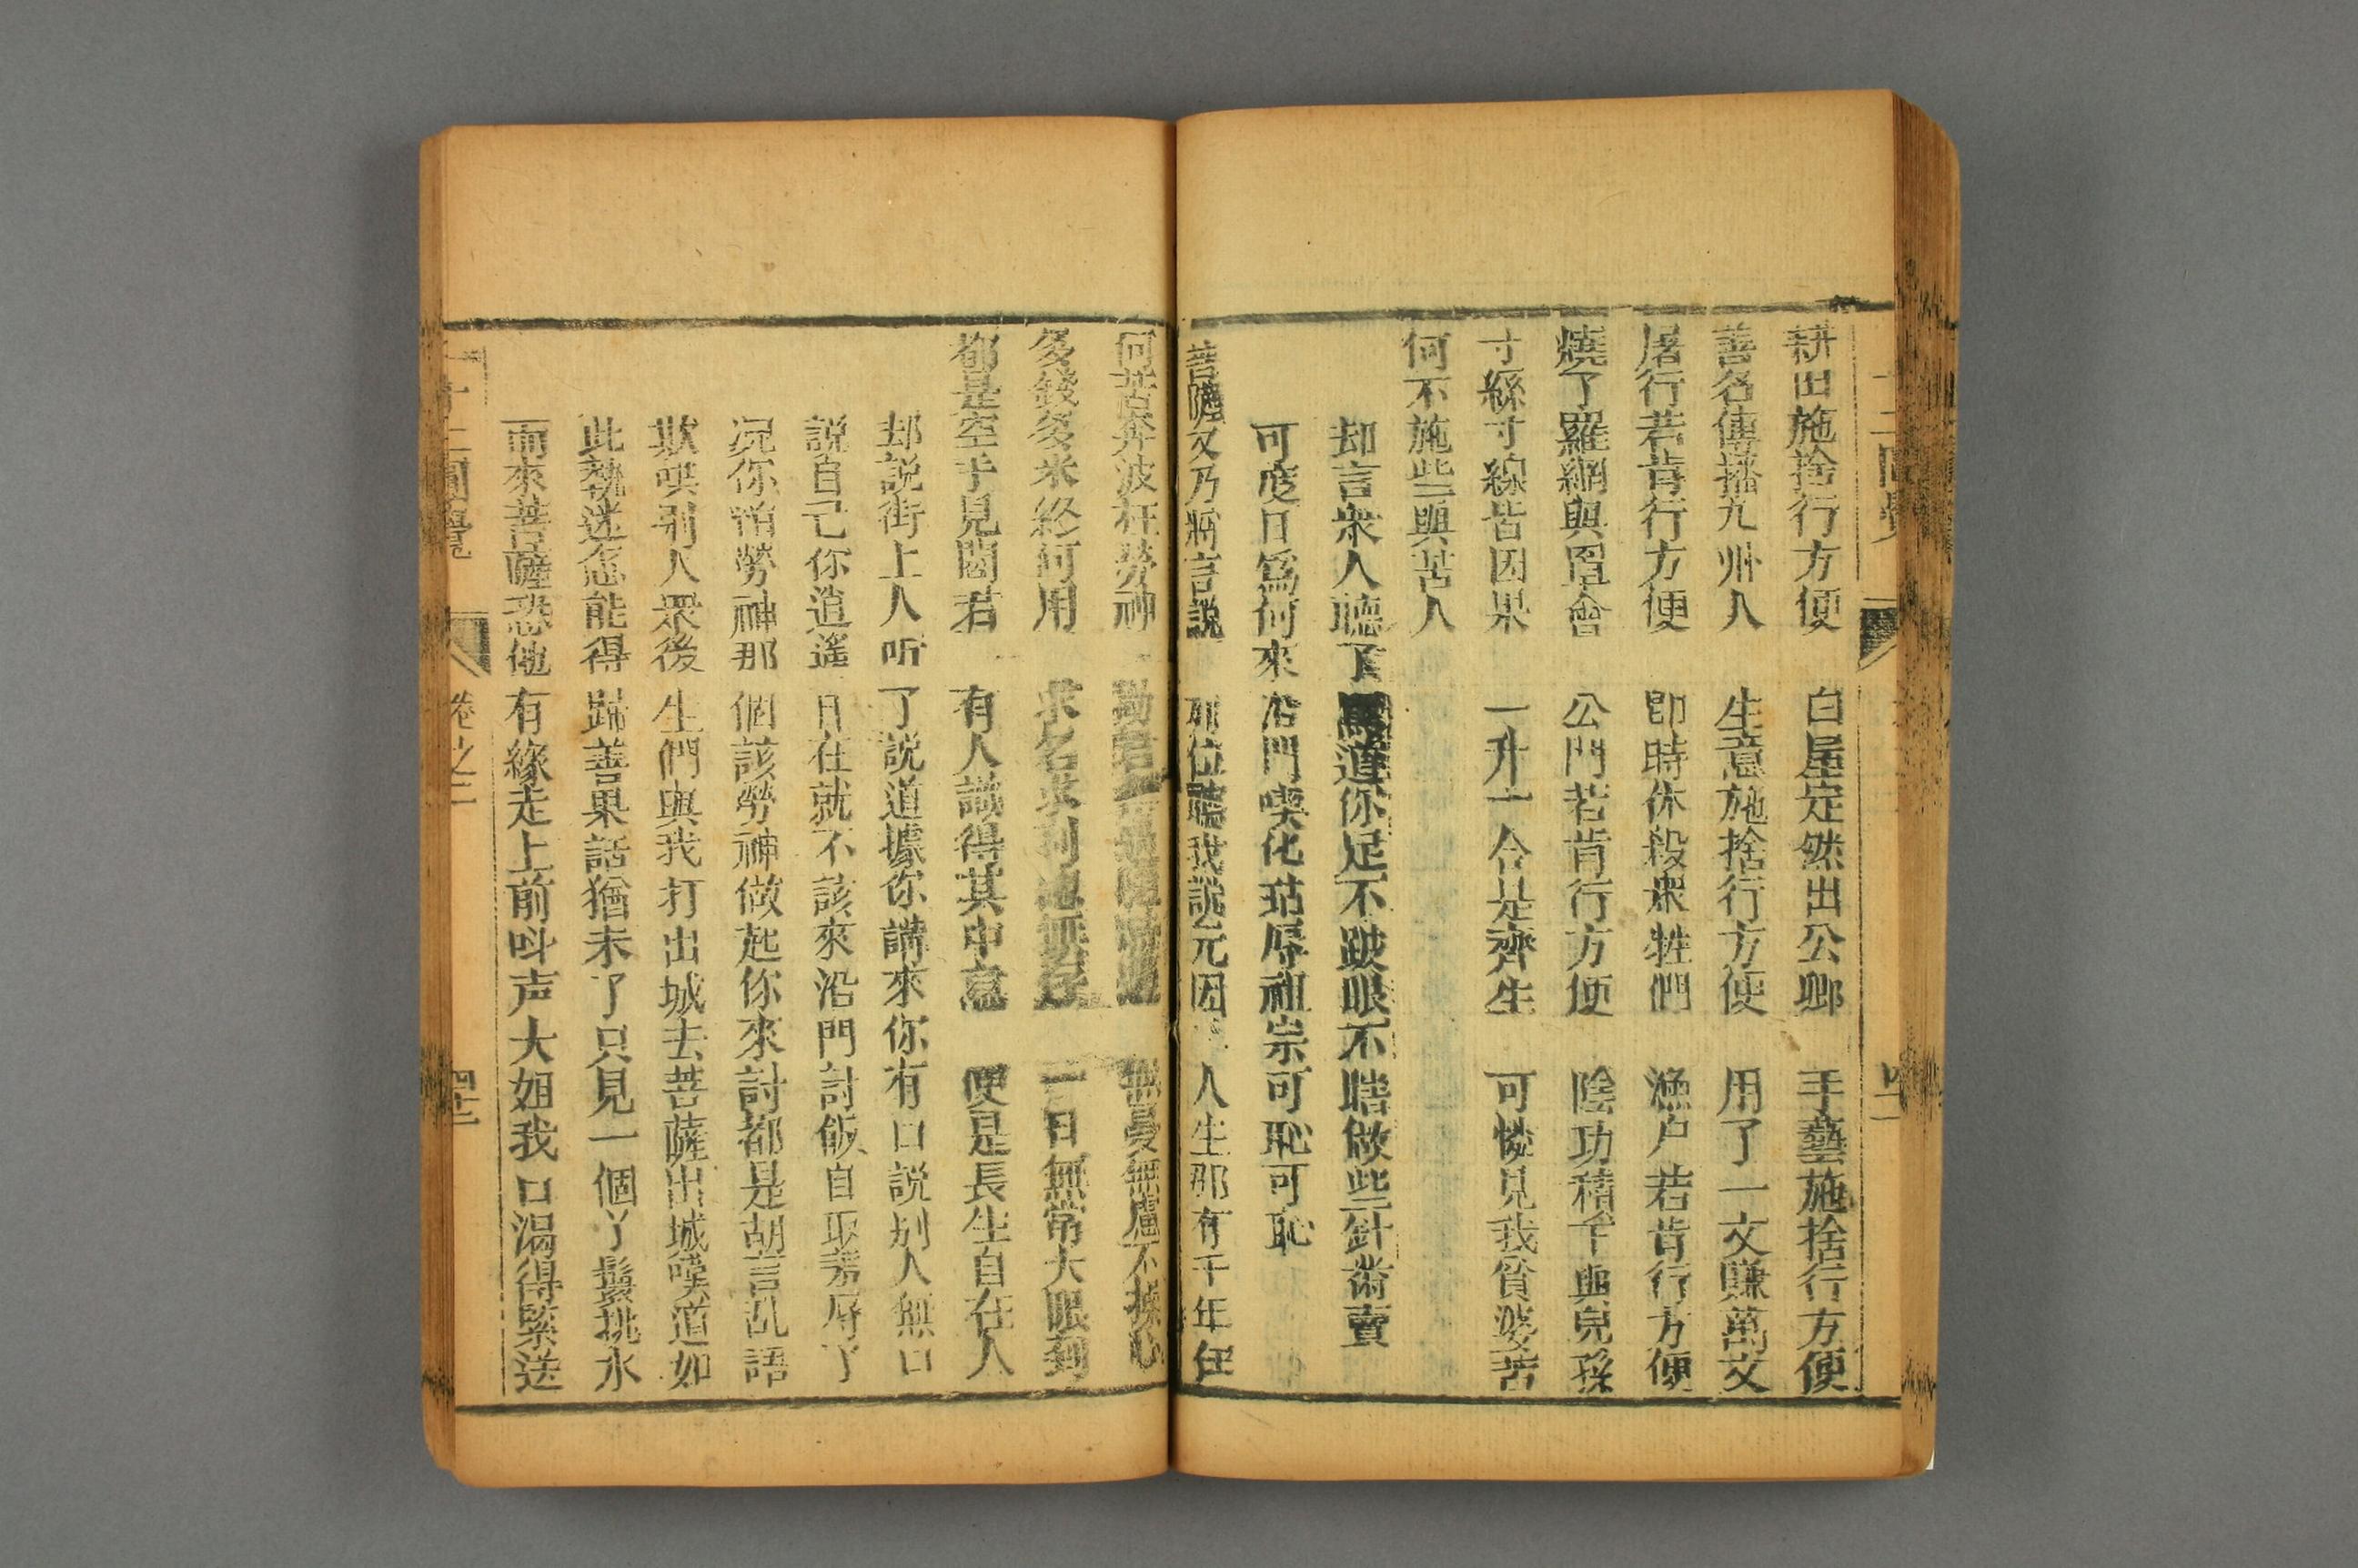 耕田施捨行方便 白屋定然出公卿 手藝施捨行方便
善名傳播九州人 生意施捨行方便 用了一文賺萬文
屠行若肯行方便 即時休殺衆牲們 漁户若肯行方便
燒了羅網與罾罾 公門若肯行方便 陰功積千與兒孫
寸絲寸線皆因果 一升一合是齊生 可憐見我貧婆苦
何不施些與苦人
却言衆人聽了罵道你足不跛眼不瞎做些針黹賣
可度日爲何來沿門喫化玷辱祖宗可恥可恥
菩薩又乃將言説 列位聽我説元因 人生那有千年在
何苦奔波枉勞神 勸君 無憂無慮不操心
多錢多米終何用 求名求利 一日無常大限到
都是空手見閻君 有人識得其中意 便是長生自在人
却説街上人听了説道據你講來你有口説别人無口
説自己你逍遥自在就不該來沿門討飯自取羞辱了
况你怕勞神那個該勞神做起你來討都是胡言乱語
欺哄别人衆後生們與我打出城去菩薩出城嘆道如
此執迷怎能得歸善果話猶未了只見一個丫鬟挑水
而來菩薩恐他有緣走上前叫声大姐我口渴得緊送
十二圓覺 卷之二 四十二